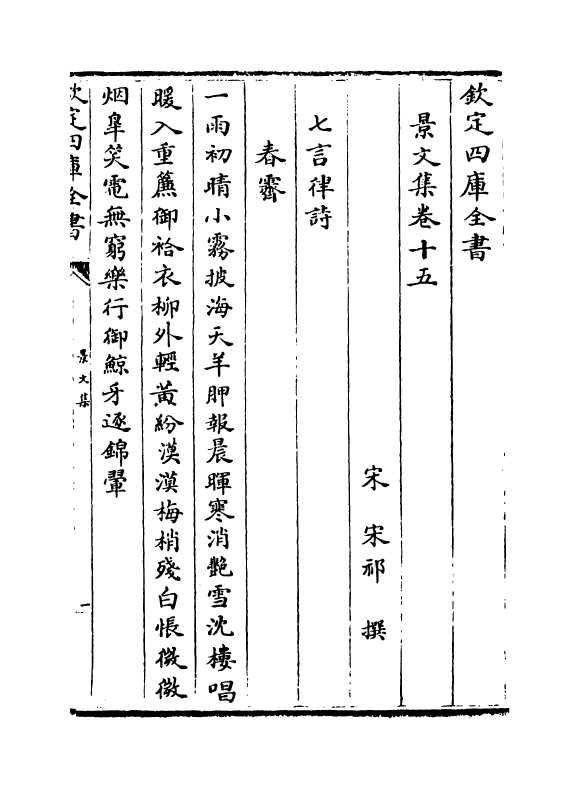 欽定四庫全書
景文集卷十五
宋 宋祁 撰
七言律詩
春霽
一雨初晴小霧披海天羊胛報晨暉寒消艷雪沈樓唱
暖入重簾御袷衣柳外輕黃紛漠漠梅梢殘白悵微微
烟皐笑電無窮樂行御鯨牙逐錦翬
欽定四庫全書
景文集
一